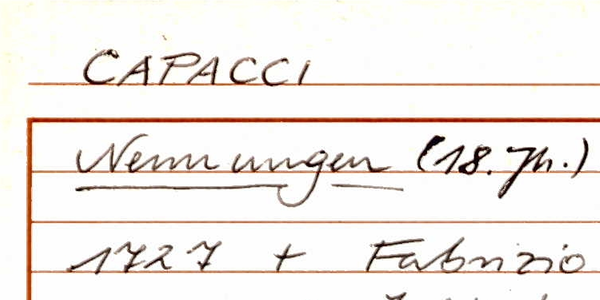 CAPACCI
Nennungen (18. Jh.)
1727 + Fabrizio